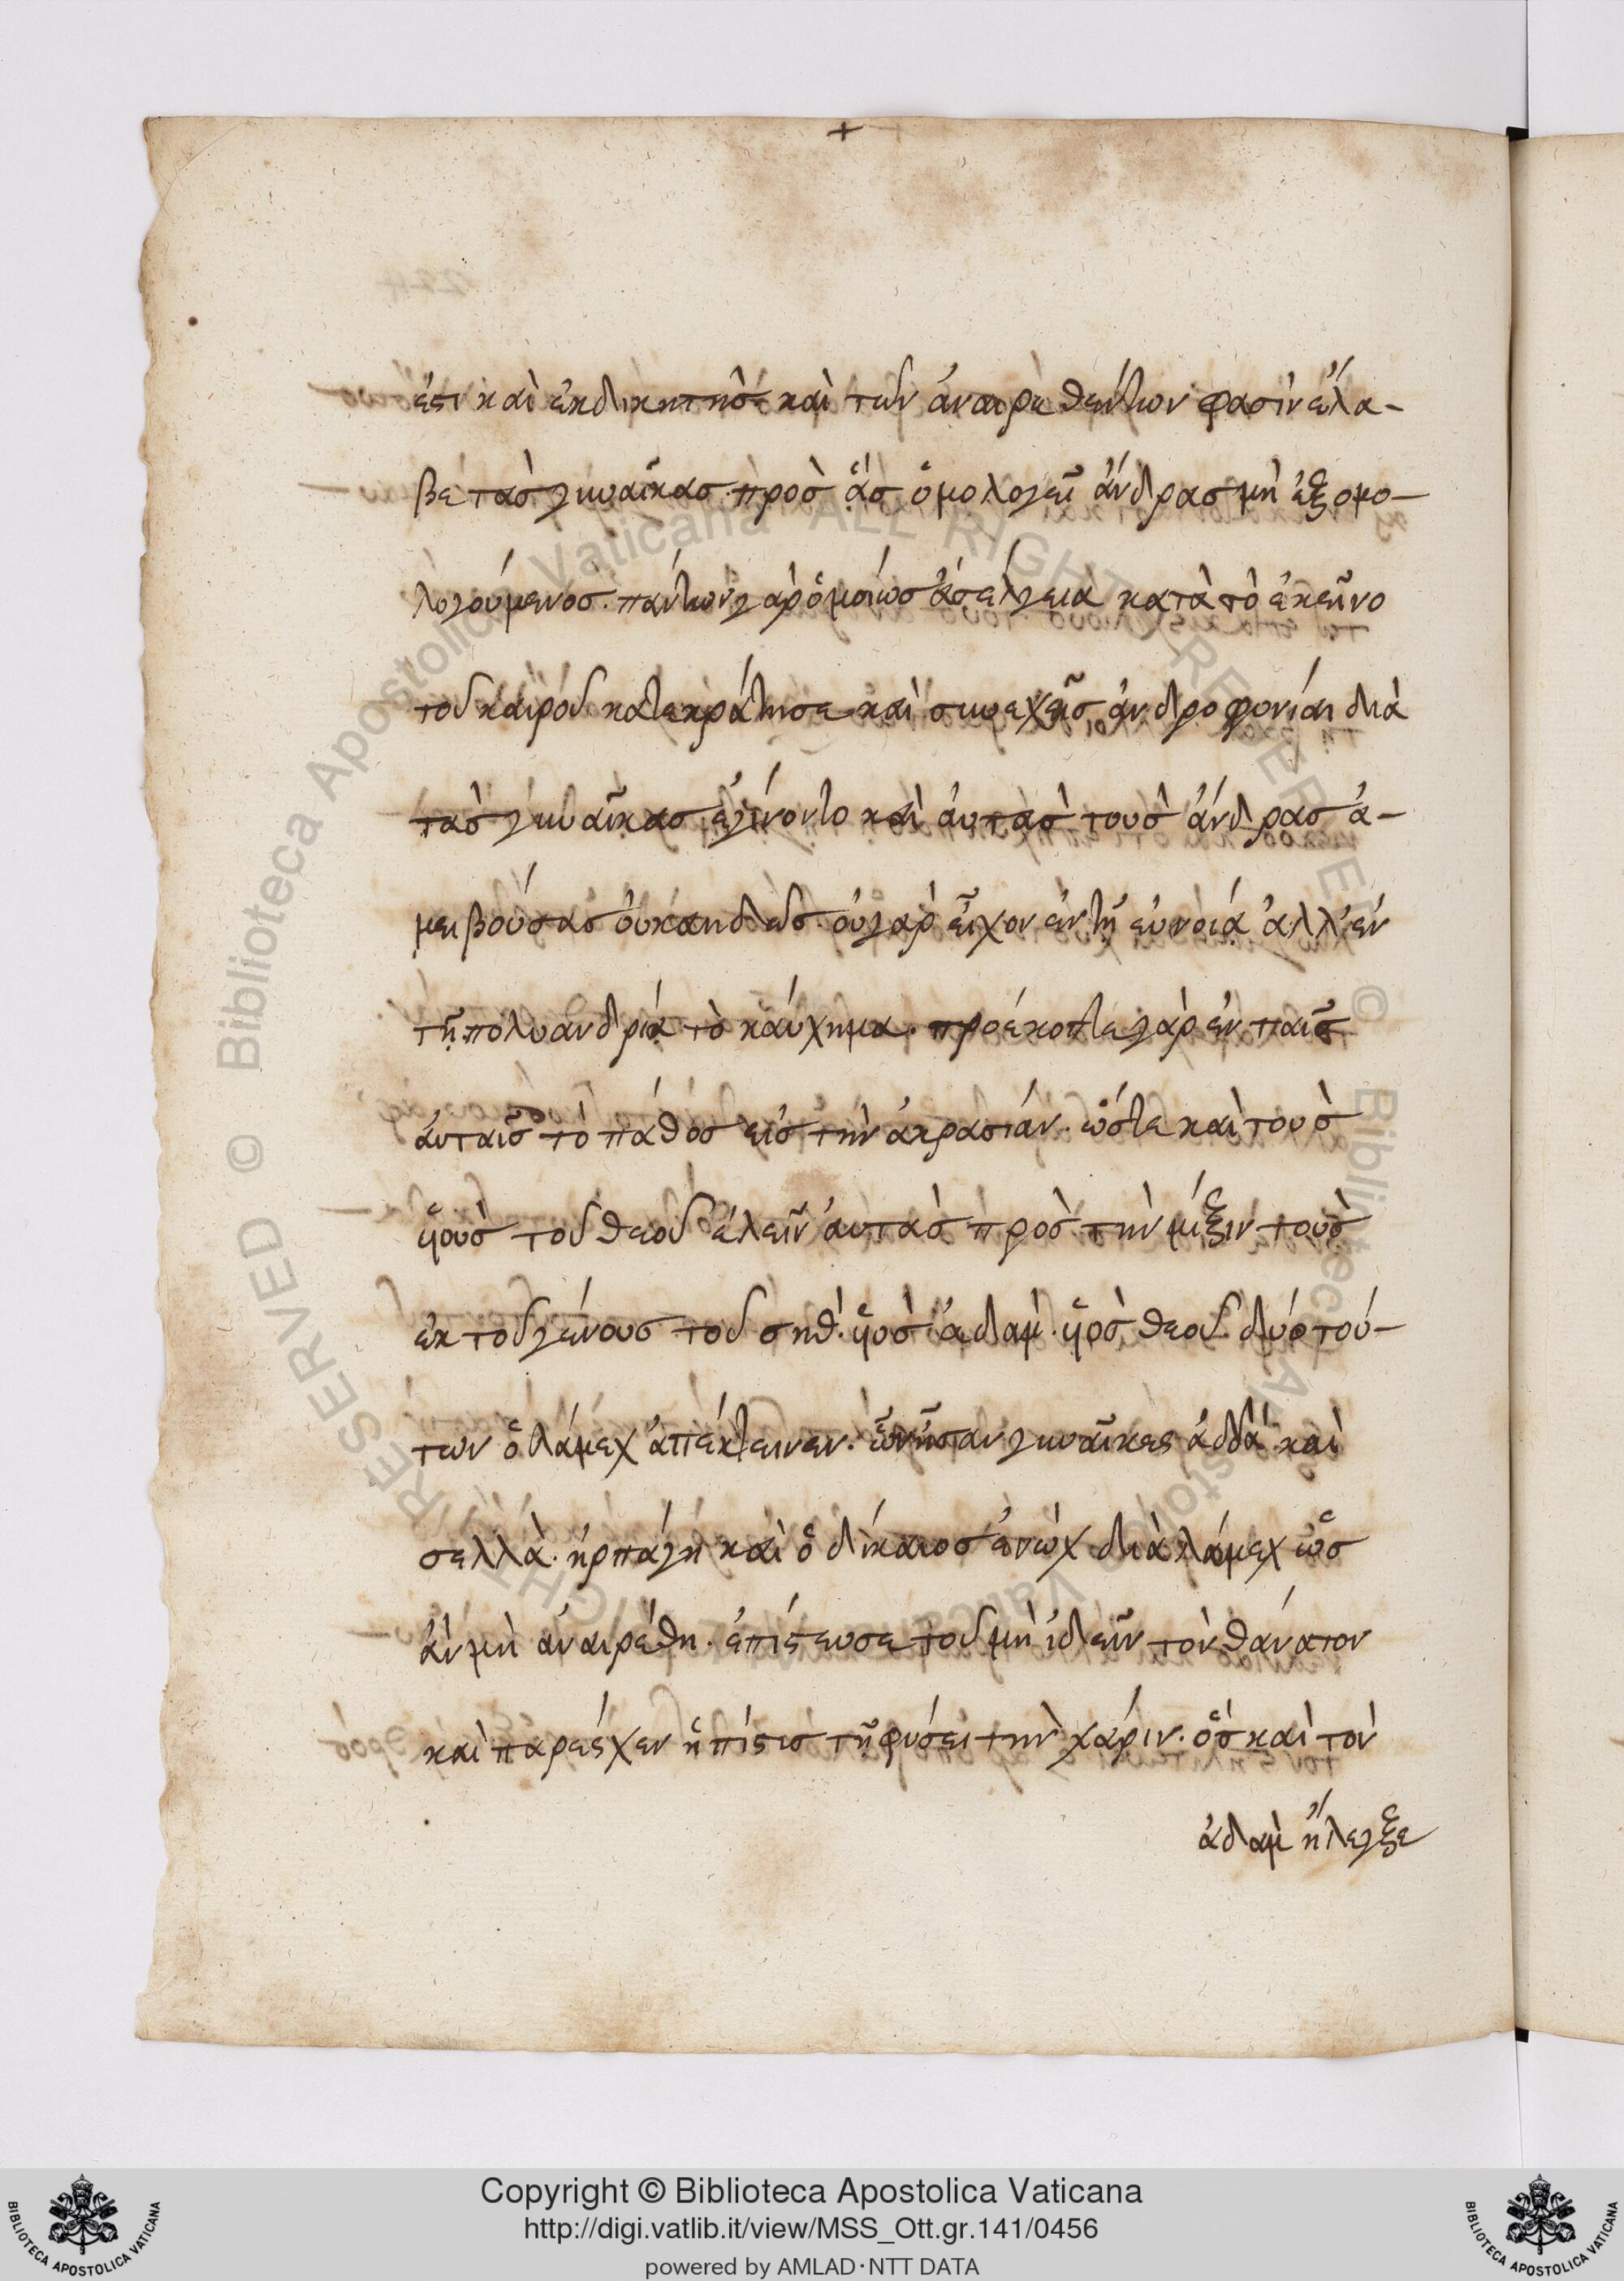 +
ἐστι καὶ ἐκδικητὴς καὶ τῶν ἀναιρεθέντων φασὶν ἔλα-
βε τὰσ γυναῖκασ πρὸσ ἃσ ὁμολογεῖ ἄνδρασ μὴ ἐξομο-
λογούμενοσ. πάντων γὰρ ὁμοίωσ ἀσέλγεια κατὰ τὸ ἐκεῖνο
τοῦ καιροῦ κατεκράτησε καὶ συνεχεῖσ ἀνδροφονίαι διὰ
τὰσ γυναῖκασ ἐγίνοντο καὶ ἀυτὰσ τοὺσ ἄνδρασ ἀ-
μειβούσασ ὀυκ ἀηδῶσ. ὀυ γὰρ εἶχον ἐν τῆ ἐυνοία ἀλλ' ἐν
τῆ πολυανδρία τὸ κάυχημα. προέκοπτε γὰρ ἐν ταῖσ
ἀυταῖσ τὸ πάθοσ εἰσ τὴν ἀκρασίαν. ὥστε καὶ τοὺσ
ὑιοὺσ τοῦ θεοῦ ἑλεῖν ἀυτὰσ πρὸσ τὴν μίξιν τοὺσ
ἐκ τοῦ γένουσ τοῦ σήθ. ὑιὸσ ἀδάμ. ὑιὸσ θεοῦ. δύο τού-
των ὁ λάμεχ ἀπέκτεινεν. ὧν ἦσαν γυναῖκες ἀδδὰ καὶ
σελλὰ. ἡρπάγη καὶ ὁ δίκαιοσ ἐνὼχ διὰ λάμεχ ὡσ
ἂν μὴ ἀναιρέθη. ἐπίστευσε τοῦ μὴ ἰδεῖν τὸν θάνατον
καὶ παρέσχεν ἡ πίστισ τῆ φύσει τὴν χάριν. ὃσ καὶ τὸν
ἀδὰμ ἤλεγξε
Copyright © Biblioteca Apostolica Vaticana
http://digi.vatlib.it/view/MSS_Ott.gr.141/0456
powered by AMLAD·NTT DATA
BIBLIOTECA APOSTOLICA VATICANA
BIBLIOTECA APOSTOLICA VATICANA